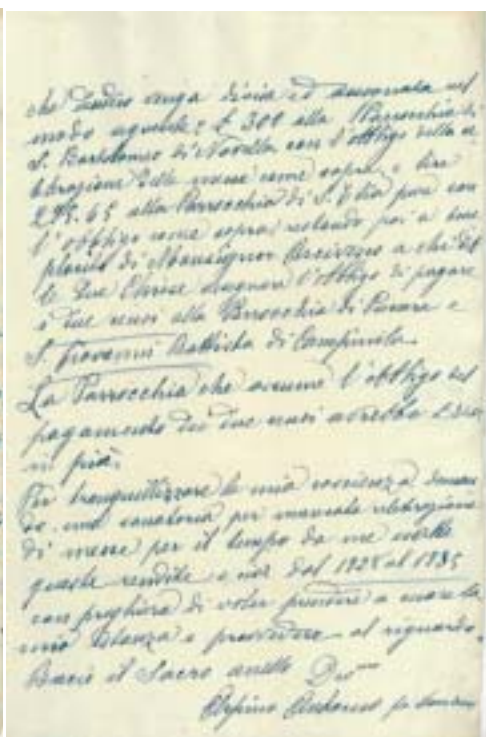 che l'indio venga divisa ed assegnata nel
modo seguente: £ 300 alla Parrocchia di
S. Bartolomeo di Novella con l'obbligo della ce
lebrazione delle messe come sopra, e lire
295.65 alla Parrocchia di S. Elia pure con
l'obbligo come sopra restando poi a bene
placito di Monsignor Arcivescovo a chi del
le due Chiese assegnare l'obbligo di pagare
i due censi alla Parrocchia di e
S. Giovanni Battista di Campinola.
La Parrocchia che assume l'obbligo del
pagamento dei due censi avrebbe £
in più.
Per tranquillizzare la mia coscienza doman
do una sanatoria per mancata celebrazione
di messe per il tempo da me
queste rendite e cioè dal 1928 al 1935
con preghiera di voler prendere a cuore la
mia istanza e provvedere al riguardo.
Bacio il Sacro anello
Antonio fu